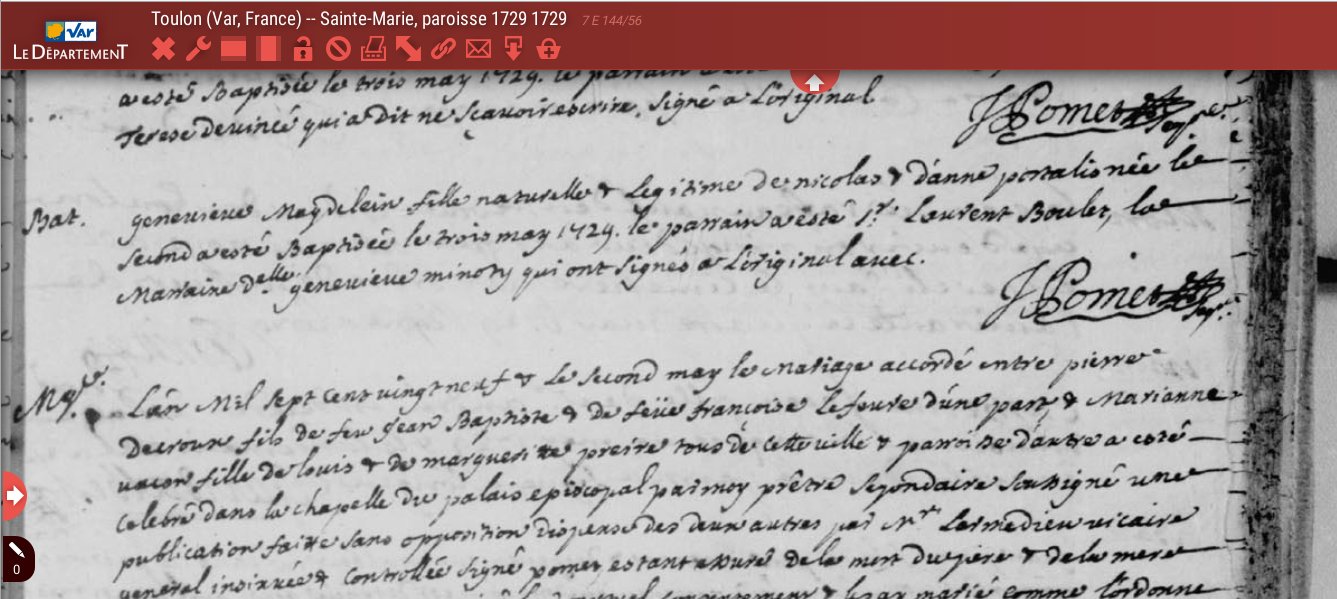 Toulon (Var, France) -- Sainte-Marie, paroisse 1729 1729 7 E 144/56
VAR
LE DÉPARTEMENT
a esté Baptisée le trois may 1729. le parrain
Terese devincé qui a dit ne sçavoir escrire, signé a L'original
JPomet
Bat.
genevieve Magdelein fille naturelle & Legitime de nicolas & d'anne portalis née le
second a esté Baptisée le trois may 1729. le parrain a esté Sr. Laurent Boulet, la
Marraine delle genevieve minoty qui ont signés a L'original avec.
JPomet
Mge.
L'an Mil sept cent vingt neuf & Le second may le Mariage accordé entre pierre
Decroux fils de feu Jean Baptiste & de feüe françoise Lefevre d'une part & Marianne
vacon fille de louis & de marguerite preire tous de cette ville & parroisse d'autre a esté
Celebré dans la chapelle du palais episcopal par moy prêtre segondaire soussigné une
publication faitte sans opposition dispense des deux autres par Mr. Larmedieu vicaire
general insinuée & Controllée signé pomet estant assuré de la mort du pere & de la mere
& les ay marié comme l'ordonne
0